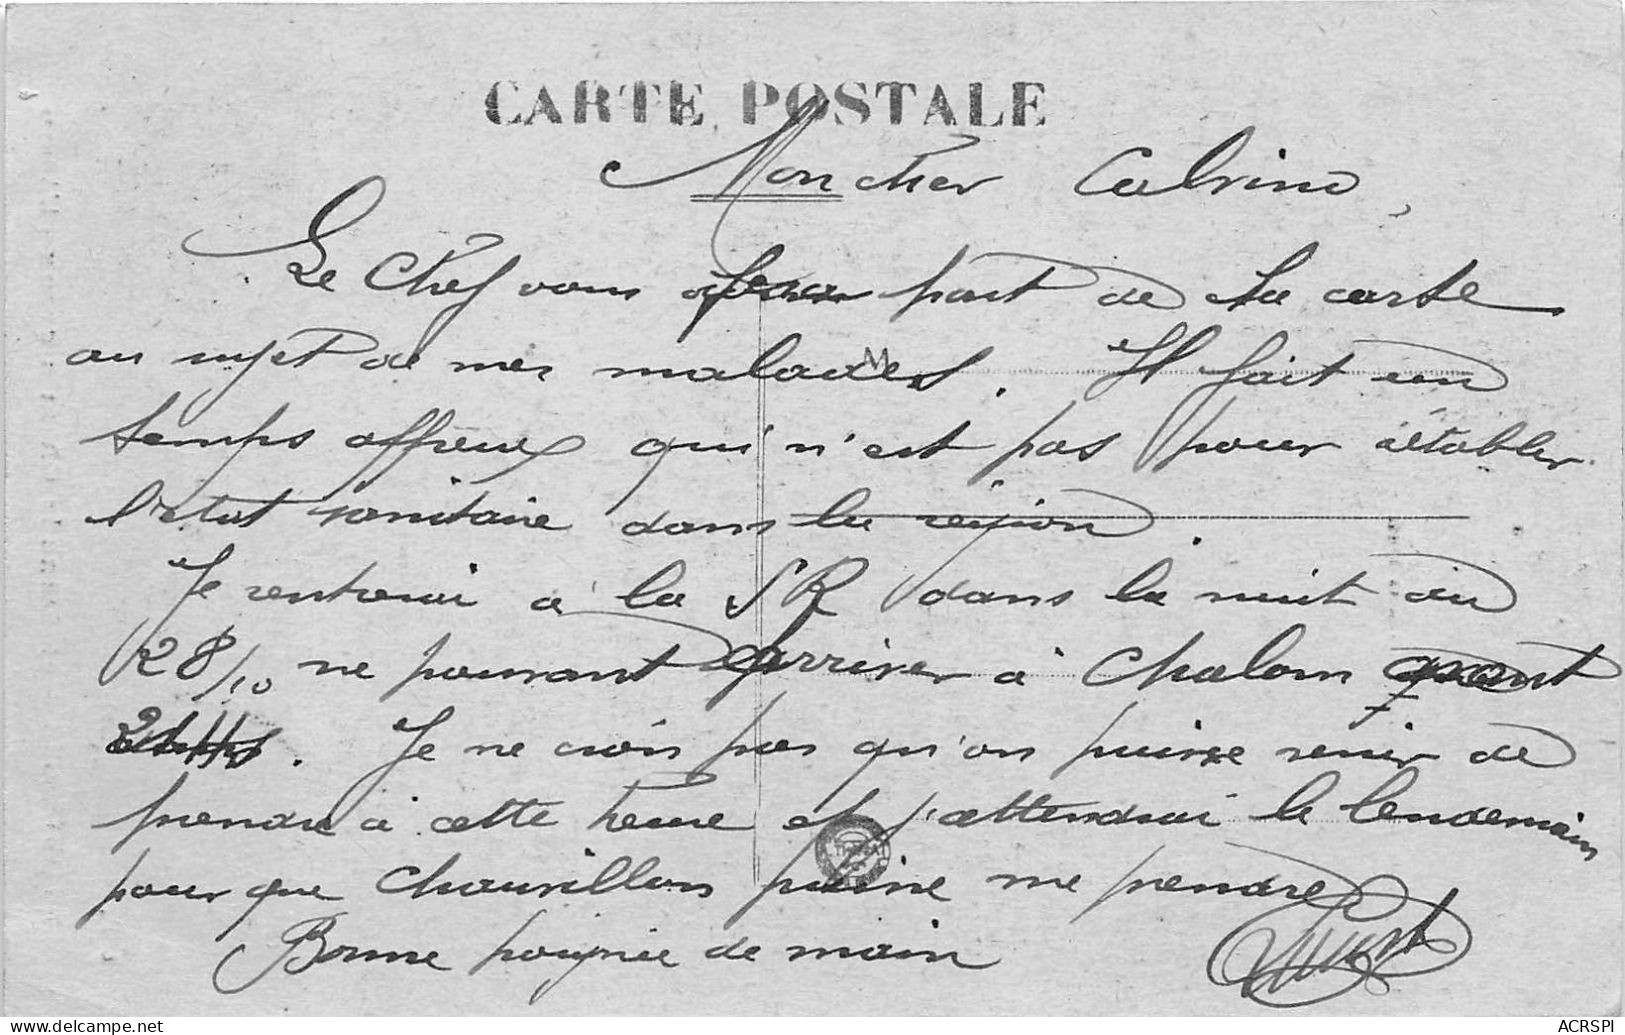 CARTE POSTALE
Mon cher Calvino,
Le Chef vous fera part de la carte
au sujet de mes malades. Il fait un
temps affreux qui n'est pas pour rétablir
l'état sanitaire dans la région.
Je rentrerai à la SR dans la nuit du
28/10 ne pouvant arriver à Chalon avant
. Je ne crois pas qu'on puisse venir de
prendre à cette heure et j'attendrai le lendemain
pour que puisse me prendre
Bonne poignée de main
ACRSPI